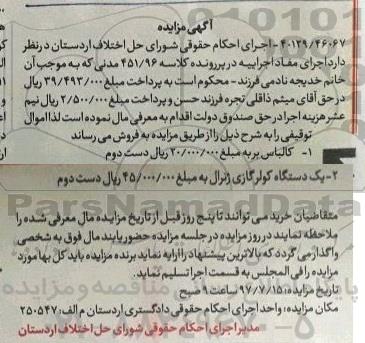 آگهی مزایده
۴۰۱۲۹/۴۶۰۶۷- اجرای احکام حقوقی شورای حل اختلاف اردستان در نظر
دارد اجرای مفاد اجراییه در پرونده کلاسه ۴۵۱/۹۶ مدنی که به موجب آن
خانم خدیجه نادمی فرزند - محکوم است به پرداخت مبلغ ۳۹/۴۹۳/۰۰۰ ریال
در حق آقای میثم ذاقلی تجره فرزند حسن و پرداخت مبلغ ۲/۵۰۰/۰۰۰ ریال نیم
عشر هزینه اجرا در حق صندوق دولت اقدام به معرفی مال نموده است لذا اموال
توقیفی را به شرح ذیل را از طریق مزایده به فروش می رساند
۱- کالباس بر به مبلغ ۲۰/۰۰۰/۰۰۰ ریال دست دوم
۲- یک دستگاه کولر گازی ژنرال به مبلغ ۴۵/۰۰۰/۰۰۰ ریال دست دوم
ParsNamadData
متقاضیان خرید می توانند تا پنج روز قبل از تاریخ مزایده مال معرفی شده را
ملاحظه نمایند در روز مزایده در جلسه مزایده حضور یابند مال فوق به شخصی
واگذار می گردد که بالاترین پیشنهاد را ارایه نماید برنده مزایده باید کل بها مورد
مزایده را فی المجلس به قسمت اجرا تسلیم نماید.
تاریخ مزایده: ۹۷/۷/۱۵ ساعت ۹ صبح
مکان مزایده: واحد اجرای احکام حقوقی دادگستری اردستان م الف: ۲۵۰۵۴۷
مدیر اجرای احکام حقوقی شورای حل اختلاف اردستان